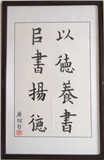 以德養書
㠯書揚德